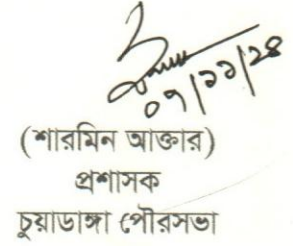 ০৭/১১/২৪
(শারমিন আক্তার)
প্রশাসক
চুয়াডাঙ্গা পৌরসভা